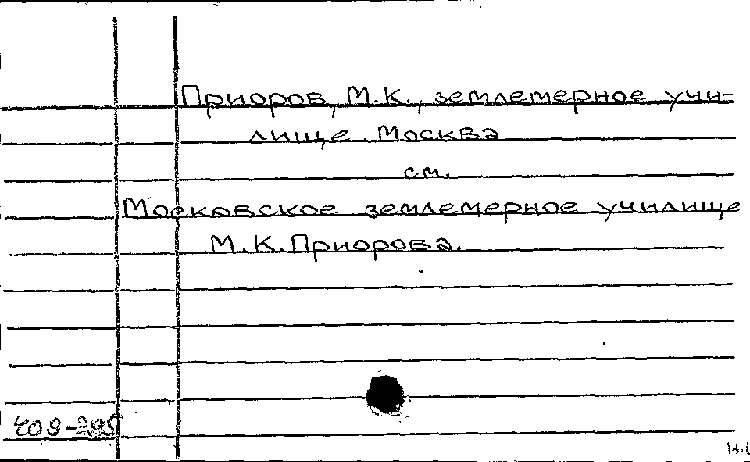 Приоров, М.К., землемерное учи-
лище. Москва
см.
Московское землемерное училище
М.К. Приорова.